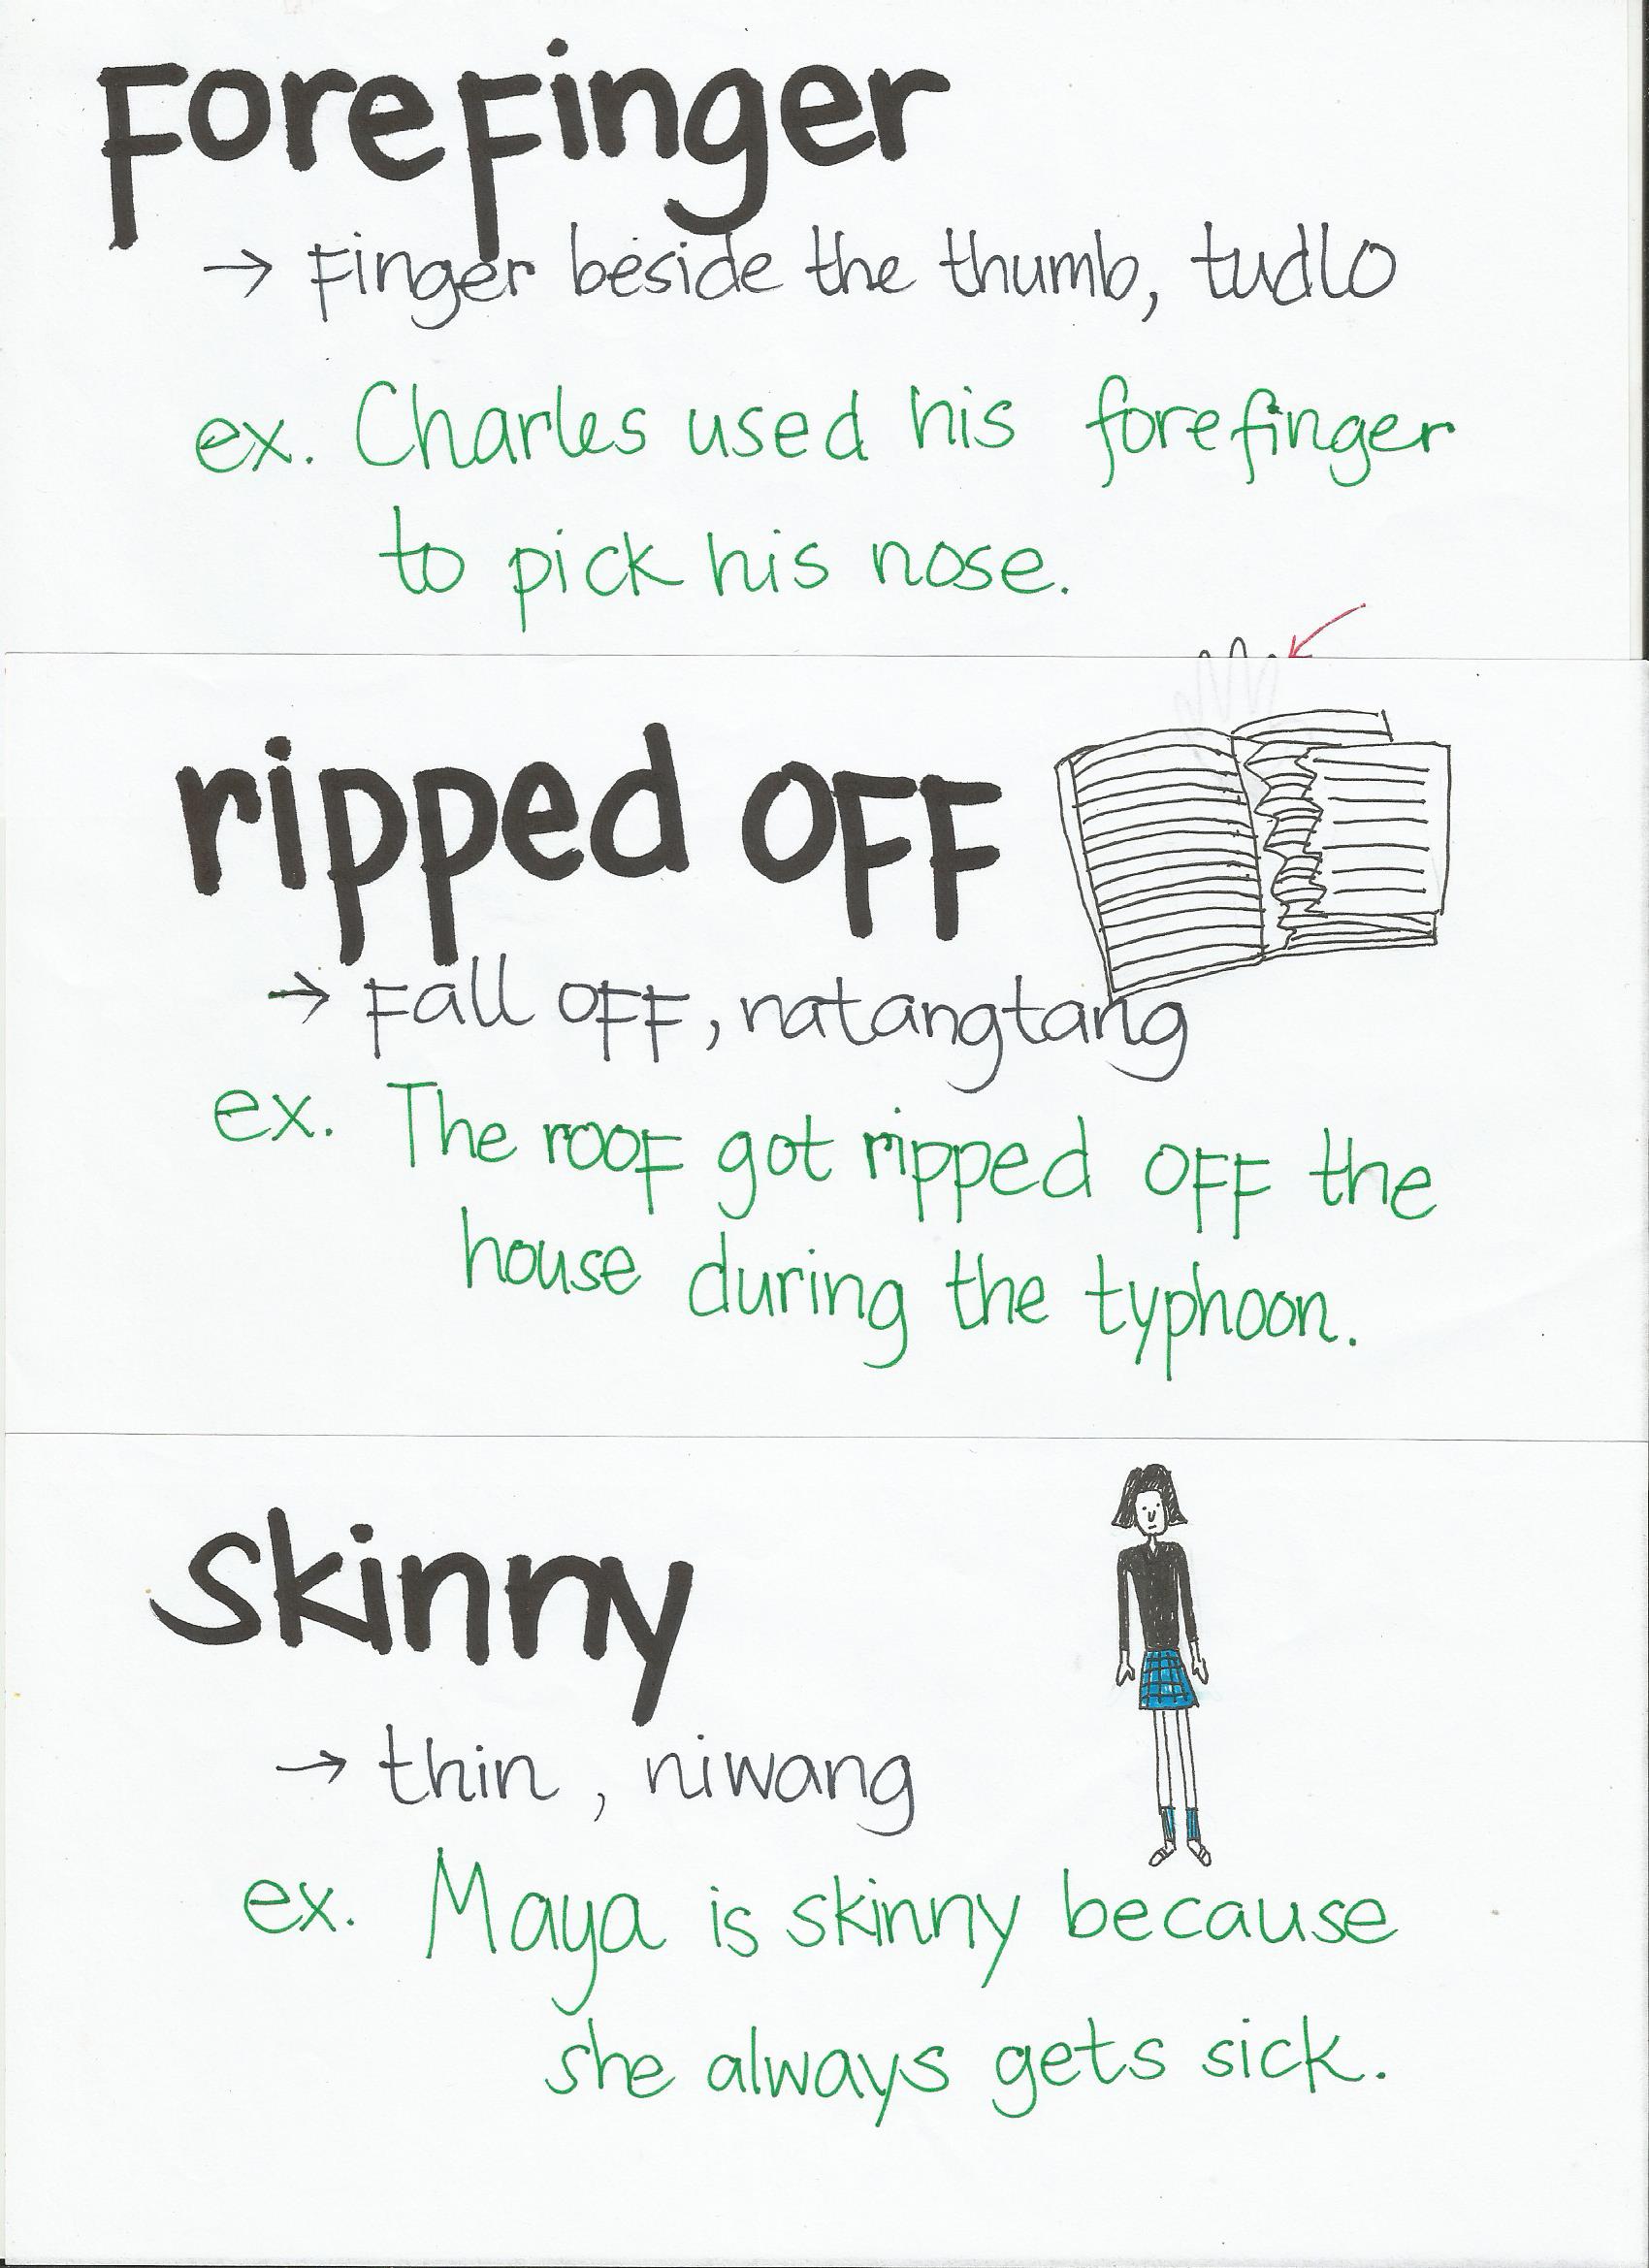 Forefinger
→ Finger beside the thumb, tudlo
ex. Charles used his forefinger
to pick his nose.
ripped OFF
→ Fall OFF, natangtang
ex. The rooF got ripped OFF the
house during the typhoon.
skinny
→ thin, niwang
ex. Maya is skinny because
she always gets sick.